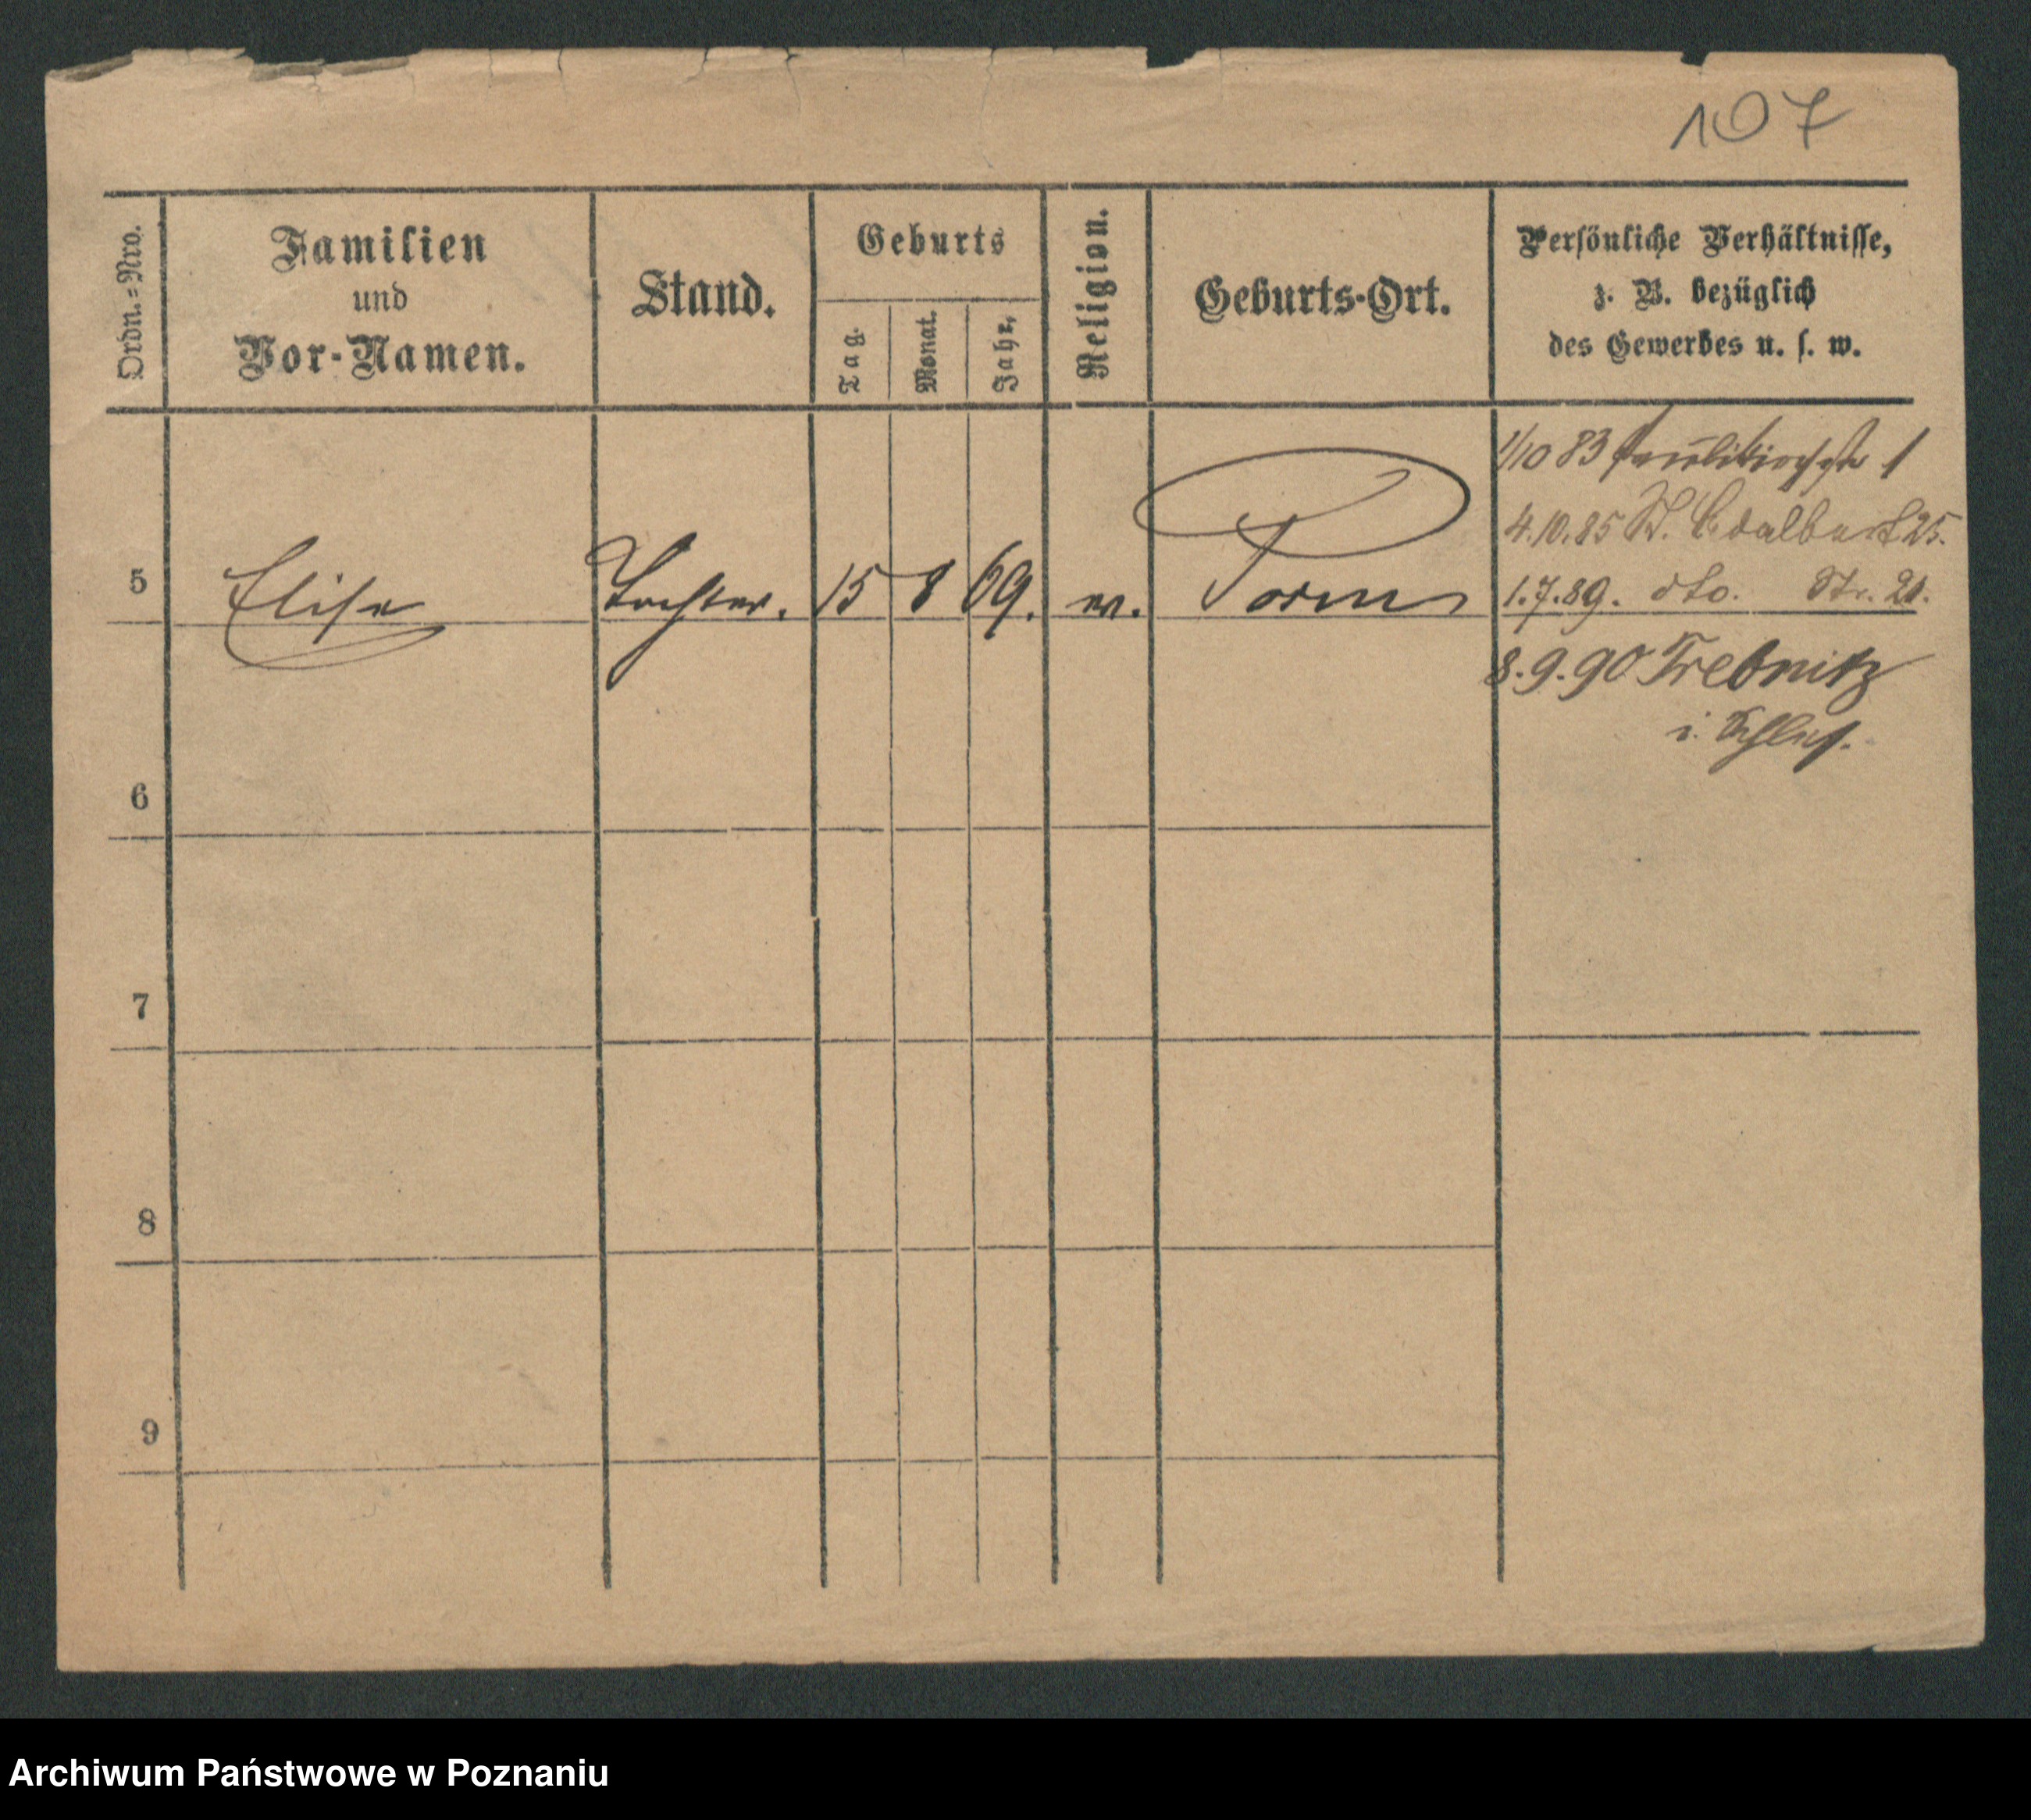 107
Ordn.=Nro.
Familien
und
Vor-Namen.
Stand.
Geburts
Tag.
Monat.
Jahr.
Religion.
Geburts-Ort.
Persönliche Verhältnisse,
z. B. bezüglich
des Gewerbes u. s. w.
1/10 83 Paulikirchstr 1
4.10.85 St. Adalbert 25.
5 Elise Tochter. 15 8 69. ev. Posen 1.7.89. dto. Str. 21.
8.9.90 Trebnitz
i. Schles.
6
7
8
9
Archiwum Państwowe w Poznaniu